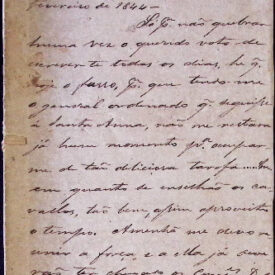 Fevereiro de 1844 -
Só p.ª não quebrar
huma vez o querido voto de
escrever te todos os dias, he q.
hoje o faço, p. q. tendo-me
o general ordenado q. seguisse
á Santa Anna, não me restava
já hum momento p.ª occupar
me de tão deliciosa tarefa
em quanto se ensilhão os ca-
vallos, tão bem, assim aproveito
o tempo. Amanhã me devo
a força, e a ella já deve
rão ter chegado os